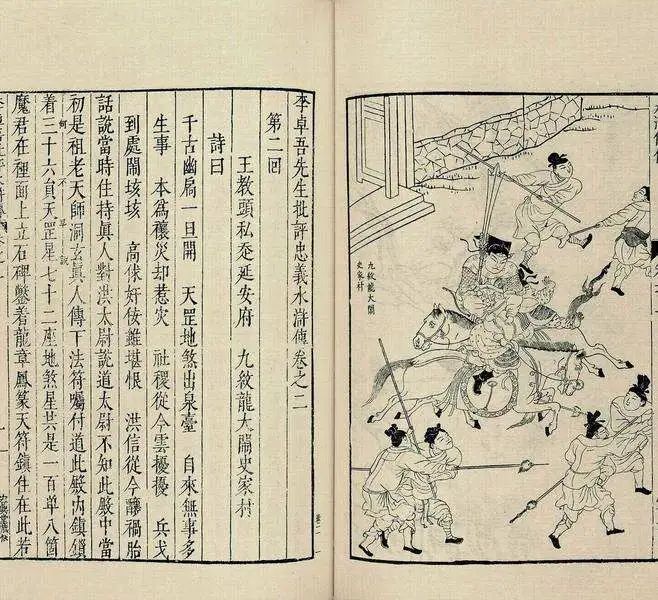 九紋龍大鬧
史家村
李卓吾先生批評忠義水滸傳卷之二
第二回
王教頭私走延安府 九紋龍大鬧史家村
詩曰
千古幽扃一日開 天罡地煞出泉臺 自來無事多
生事 本為禳災却惹災 社稷從今雲擾擾 兵戈
到處鬧垓垓 高俅奸佞雖堪恨 洪信從今釀禍胎
話說當時住持眞人對洪太尉說道太尉不知此殿中當
初是祖老天師洞玄眞人傳下法符囑付道此殿內鎮鎖
何不早說
着三十六員天罡星七十二座地煞星共是一百單八箇
魔君在裡面上立石碑鑿着龍章鳳篆天符鎮住在此若